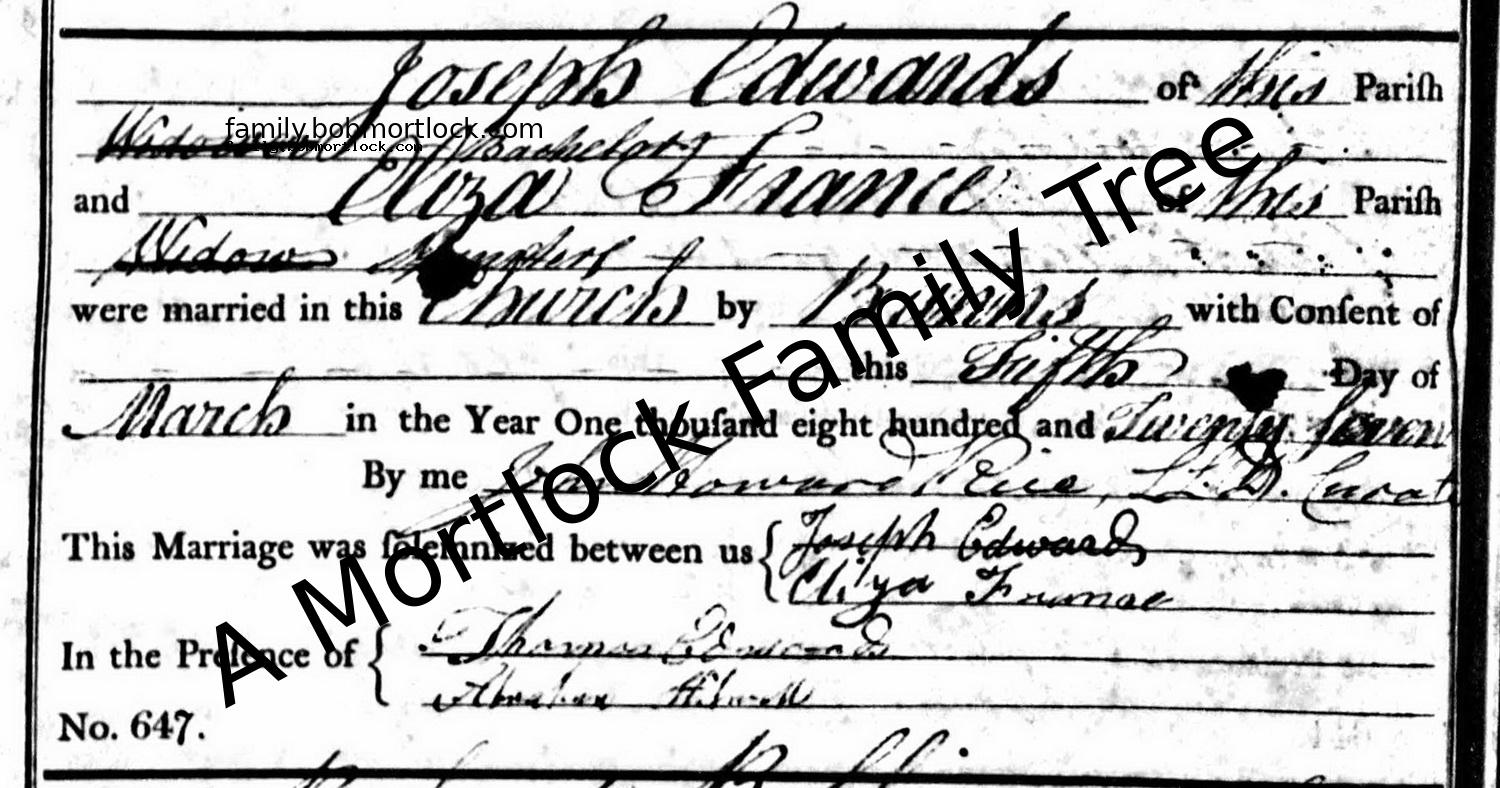 Joseph Edwards of this Pariſh
Widower Bachelor
family.bobmortlock.com
and Eliza France of this Pariſh
Widow Spinster
were married in this Church by Banns with Conſent of
this Fifth Day of
March in the Year One thouſand eight hundred and Twenty Seven
By me John Howard Rice, LL.D. Curate
This Marriage was ſolemnized between us { Joseph Edwards
Eliza France
In the Preſence of { Thomas Edwards
Abraham
No. 647.
A Mortlock Family Tree